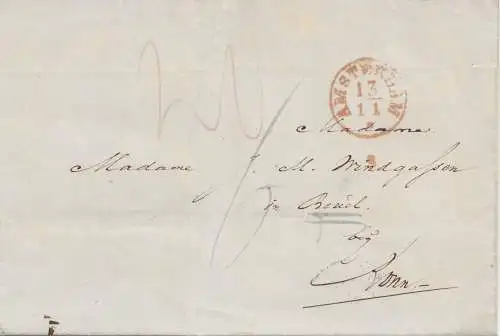 AMSTERDAM
13
11
Madame
Madame J. M. Windgaßen
in Beuel
bij
Bonn.